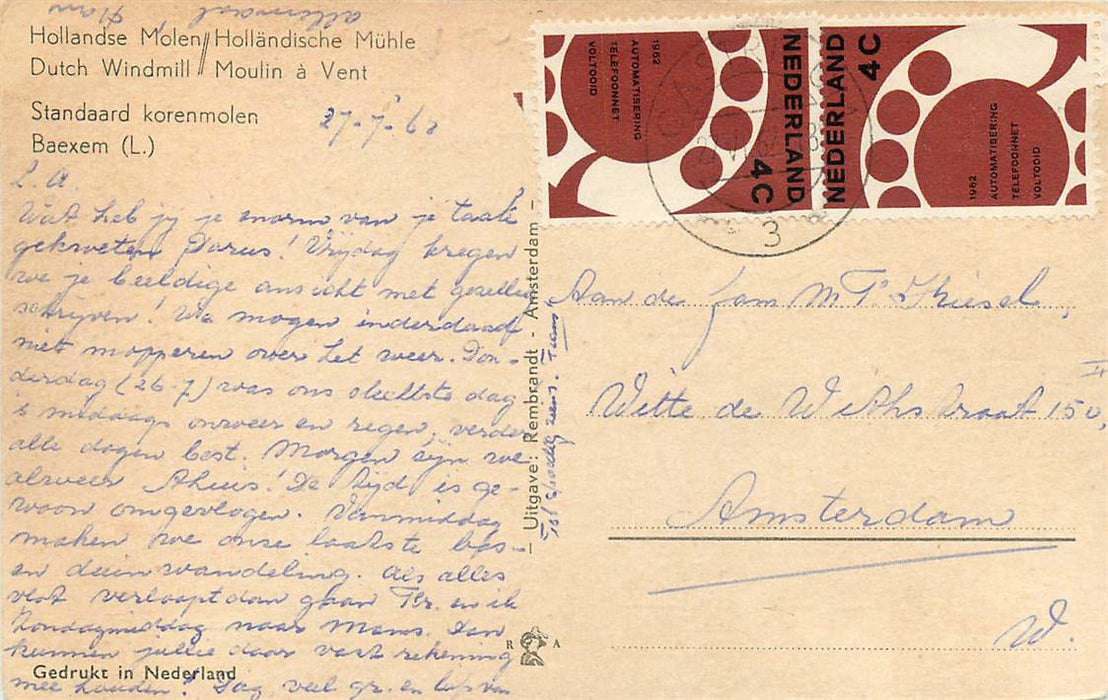 allemaal
Hollandse Molen // Holländische Mühle
Dutch Windmill // Moulin à Vent
Standaard korenmolen
Baexem (L.)
27-7-62
L.A.
Wat heb jij je enorm van je taak
gekweten Darus! Vrijdag kregen
we je beeldige ansicht met gezellig
schrijven! We mogen inderdaad
niet mopperen over het weer. Don-
derdag (26-7) was ons slechtste dag
's middags onweer en regen, verder
alle dagen best. Morgen zijn we
alweer thuis! De tijd is ge-
woon omgevlogen. Vanmiddag
maken we onze laatste bos-
en duinwandeling. Als alles
vlot verloopt dan gaan Tr. en ik
Zondagmiddag naar Mams. Dan
kunnen jullie daar vast rekening
mee houden! Dag, veel gr. en liefs van
Gedrukt in Nederland
– Uitgave: Rembrandt - Amsterdam –
Tot spoedig ziens.
R A
1962
AUTOMATISERING
TELEFOONNET
VOLTOOID
NEDERLAND
4C
NEDERLAND
4C
1962
AUTOMATISERING
TELEFOONNET
VOLTOOID
3
Aan de fam
Witte de Withstraat 150 II,
Amsterdam
W.